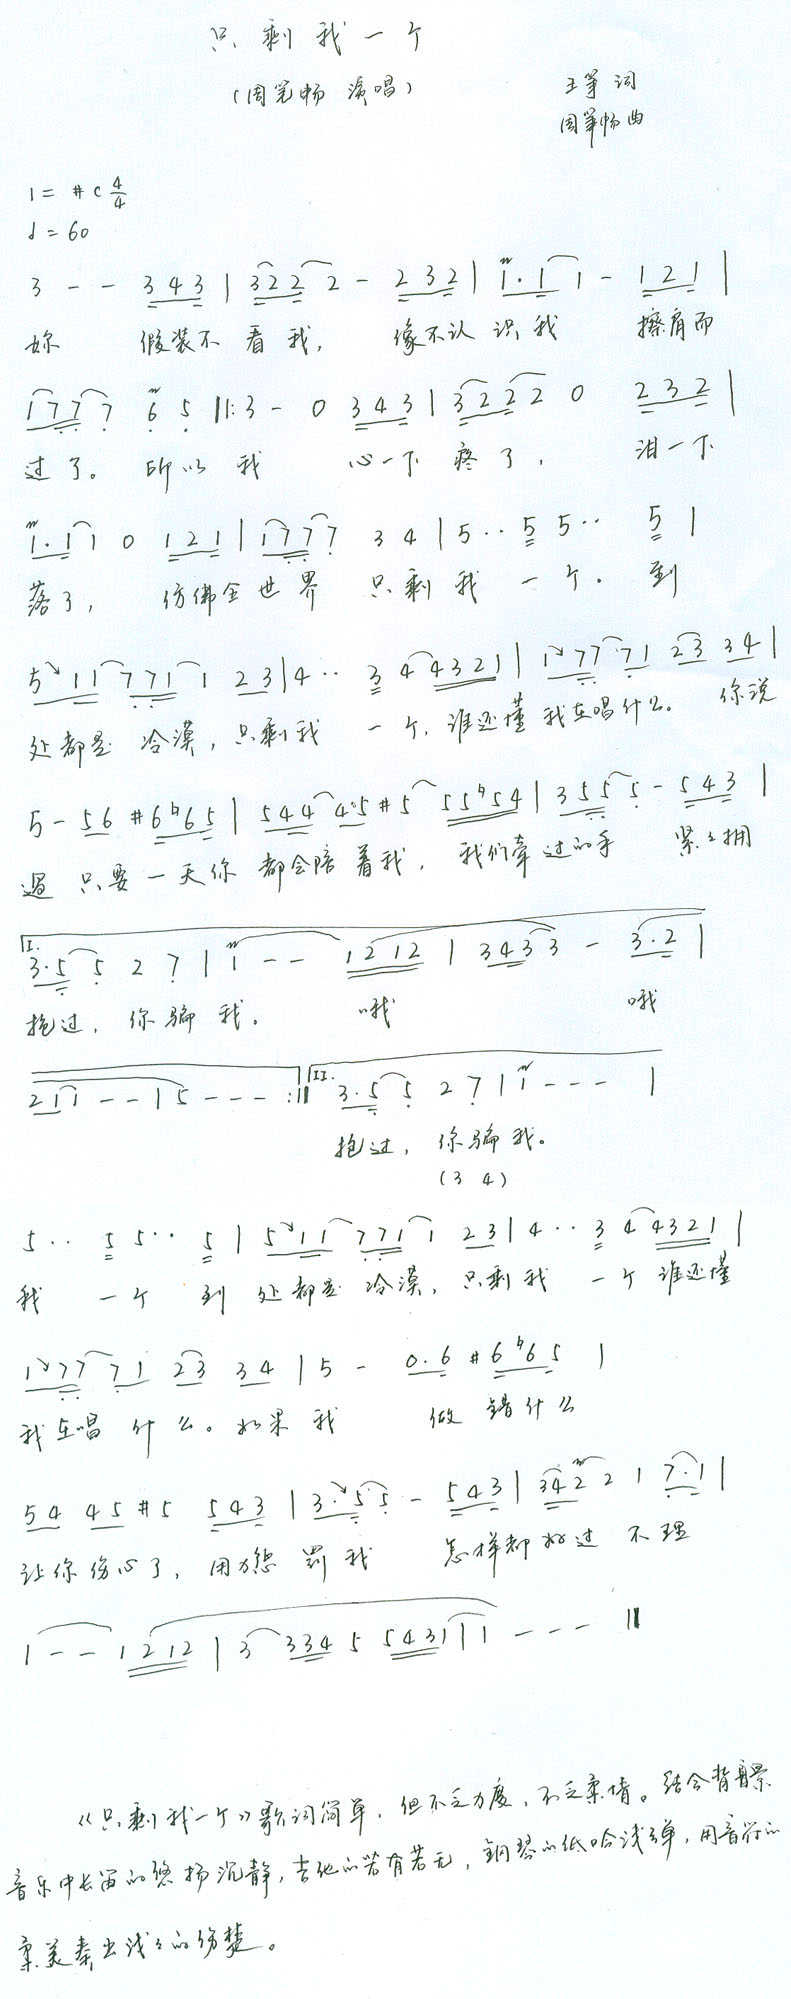 只剩我一个
（周笔畅 演唱）
王筝 词
周笔畅 曲
1= #C 4/4
♩= 60
3 - - 3 4 3 | 3 2 2 2 - 2 3 2 | 1 · 1 1 - 1 2 1 |
你 假装不 看我， 像不认识我 擦肩而
1 7 7 7 6 5 ‖: 3 - 0 3 4 3 | 3 2 2 2 0 2 3 2 |
过了。 所以 我 心一下 疼了， 泪一下
1 · 1 1 0 1 2 1 | 1 7 7 7 3 4 | 5 ·· 5 5 ·· 5 |
落了， 仿佛全世界 只剩我 一个. 到
5 1 1 7 7 1 1 2 3 | 4 ·· 3 4 4 3 2 1 | 1 7 7 7 1 2 3 3 4 |
处都是 冷漠，只剩我 一个，谁还懂 我在唱什么。 你说
5 - 5 6 #6 ♮6 5 | 5 4 4 4 5 #5 5 5 ♮5 4 | 3 5 5 5 - 5 4 3 |
过 只要一天你 都会陪着我， 我们牵过的手 紧紧拥
I.
3 · 5 5 2 7 | 1 - - 1 2 1 2 | 3 4 3 3 - 3 · 2 |
抱过，你骗我。 哦 哦
2 1 1 - - | 5 - - - :‖ II. 3 · 5 5 2 7 | 1 - - - |
抱过， 你骗我。
(3 4)
5 ·· 5 5 ·· 5 | 5 1 1 7 7 1 1 2 3 | 4 ·· 3 4 4 3 2 1 |
我 一个 到 处都是 冷漠，只剩我 一个 谁还懂
1 7 7 7 1 2 3 3 4 | 5 - 0 · 6 #6 ♮6 5 |
我在唱 什么。如果我 做 错什么
5 4 4 5 #5 5 4 3 | 3 · 5 5 - 5 4 3 | 3 4 2 2 1 7 · 1 |
让你伤心了，用力惩 罚我 怎样都好过 不理
1 - - 1 2 1 2 | 3 3 3 4 5 5 4 3 1 | 1 - - - ‖
《只剩我一个》歌词简单，但不乏力度，不乏柔情。结合背景
音乐中长笛的悠扬沉静，吉他的若有若无，钢琴的低吟浅弹，用音符的
柔美奏出浅浅的伤楚。